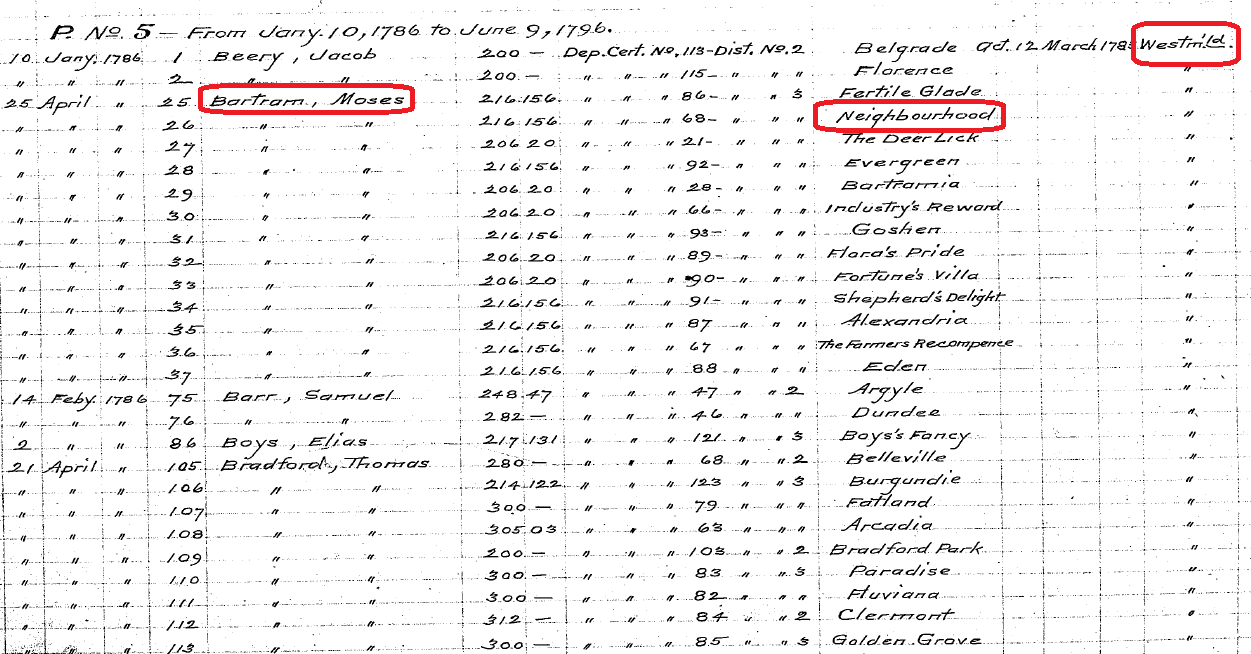 P. No. 5 — From Jany. 10, 1786 to June 9, 1796.
10 Jany. 1786 1 Beery, Jacob 200 — Dep. Cert. No. 113 - Dist. No. 2 Belgrade Act. 12 March 178 Westm'ld.
" " " 2 " " 200 — " " " 115 — " " " Florence "
25 April " 25 Bartram, Moses 216.156. " " " 86 — " " 3 Fertile Glade "
" " " 26 " " 216 156 " " " 68 - " " " Neighbourhood "
" " " 27 " " 206 20 " " " 21 - " " " The Deer Lick "
" " " 28 " " 216 156 " " " 92 - " " " Evergreen "
" " " 29 " " 206 20 " " " 28 - " " " Bartramia "
" " " 30 " " 206 20 " " " 66 - " " " Industry's Reward "
" " " 31 " " 216 156 " " " 93 - " " " Goshen "
" " " 32 " " 206 20 " " " 89 - " " " Flora's Pride "
" " " 33 " " 206 20 " " " 90 - " " " Fortune's Villa "
" " " 34 " " 216 156 " " " 91 - " " " Shepherd's Delight "
" " " 35 " " 216 156 " " " 87 " " " Alexandria "
" " " 36 " " 216 156. " " " 67 " " " The Farmers Recompence "
" " " 37 " " 216 156 " " " 88 " " " Eden "
14 Feby. 1786 75 Barr, Samuel 248 47 " " " 47 " " 2 Argyle "
" " " 76 " " 282 — " " " 46 " " " Dundee "
2 " " 86 Boys, Elias 217.131 " " " 121 " " 3 Boys's Fancy "
21 April " 105 Bradford, Thomas 280 — " " " 68 " " 2 Belleville "
" " " 106 " " 214.122 " " " 123 " " 3 Burgundie "
" " " 107 " " 300 — " " " 79 " " " Fatland "
" " " 108 " " 305 03 " " " 63 " " " Arcadia "
" " " 109 " " 200 — " " " 103 " " 2 Bradford Park "
" " " 110 " " 300 — " " " 83 " " 3 Paradise "
" " " 111 " " 300 — " " " 82 " " " Fluviana "
" " " 112 " " 312 — " " " 84 " " 2 Clermont "
" " " 113 " " 300 — " " " 85 " " 3 Golden Grove "